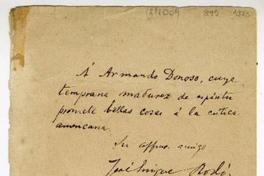 A Armando Donoso, cuya
temprana madurez de espíritu
promete bellas cosas á la crítica
americana.
Su affmo. amigo
José Enrique Rodó.